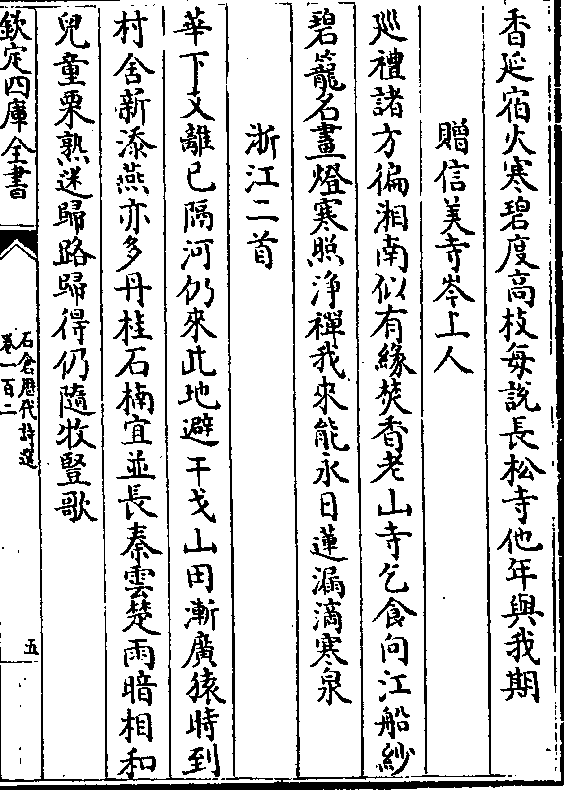 香延宿火寒碧度高枝每說長松寺他年與我期
贈信美寺岑上人
廵禮諸方徧湘南似有緣焚香老山寺乞食向江船紗
碧籠名畫燈寒照浄禪我來能永日蓮漏滴寒泉
浙江二首
華下又離已隔河仍來此地避干戈山田漸廣猿時到
村舍新添燕亦多丹桂石楠宜並長秦雲楚雨暗相和
兒童栗熟迷歸路歸得仍隨牧豎歌
欽定四庫全書
石倉歴代詩選
卷一百二
五